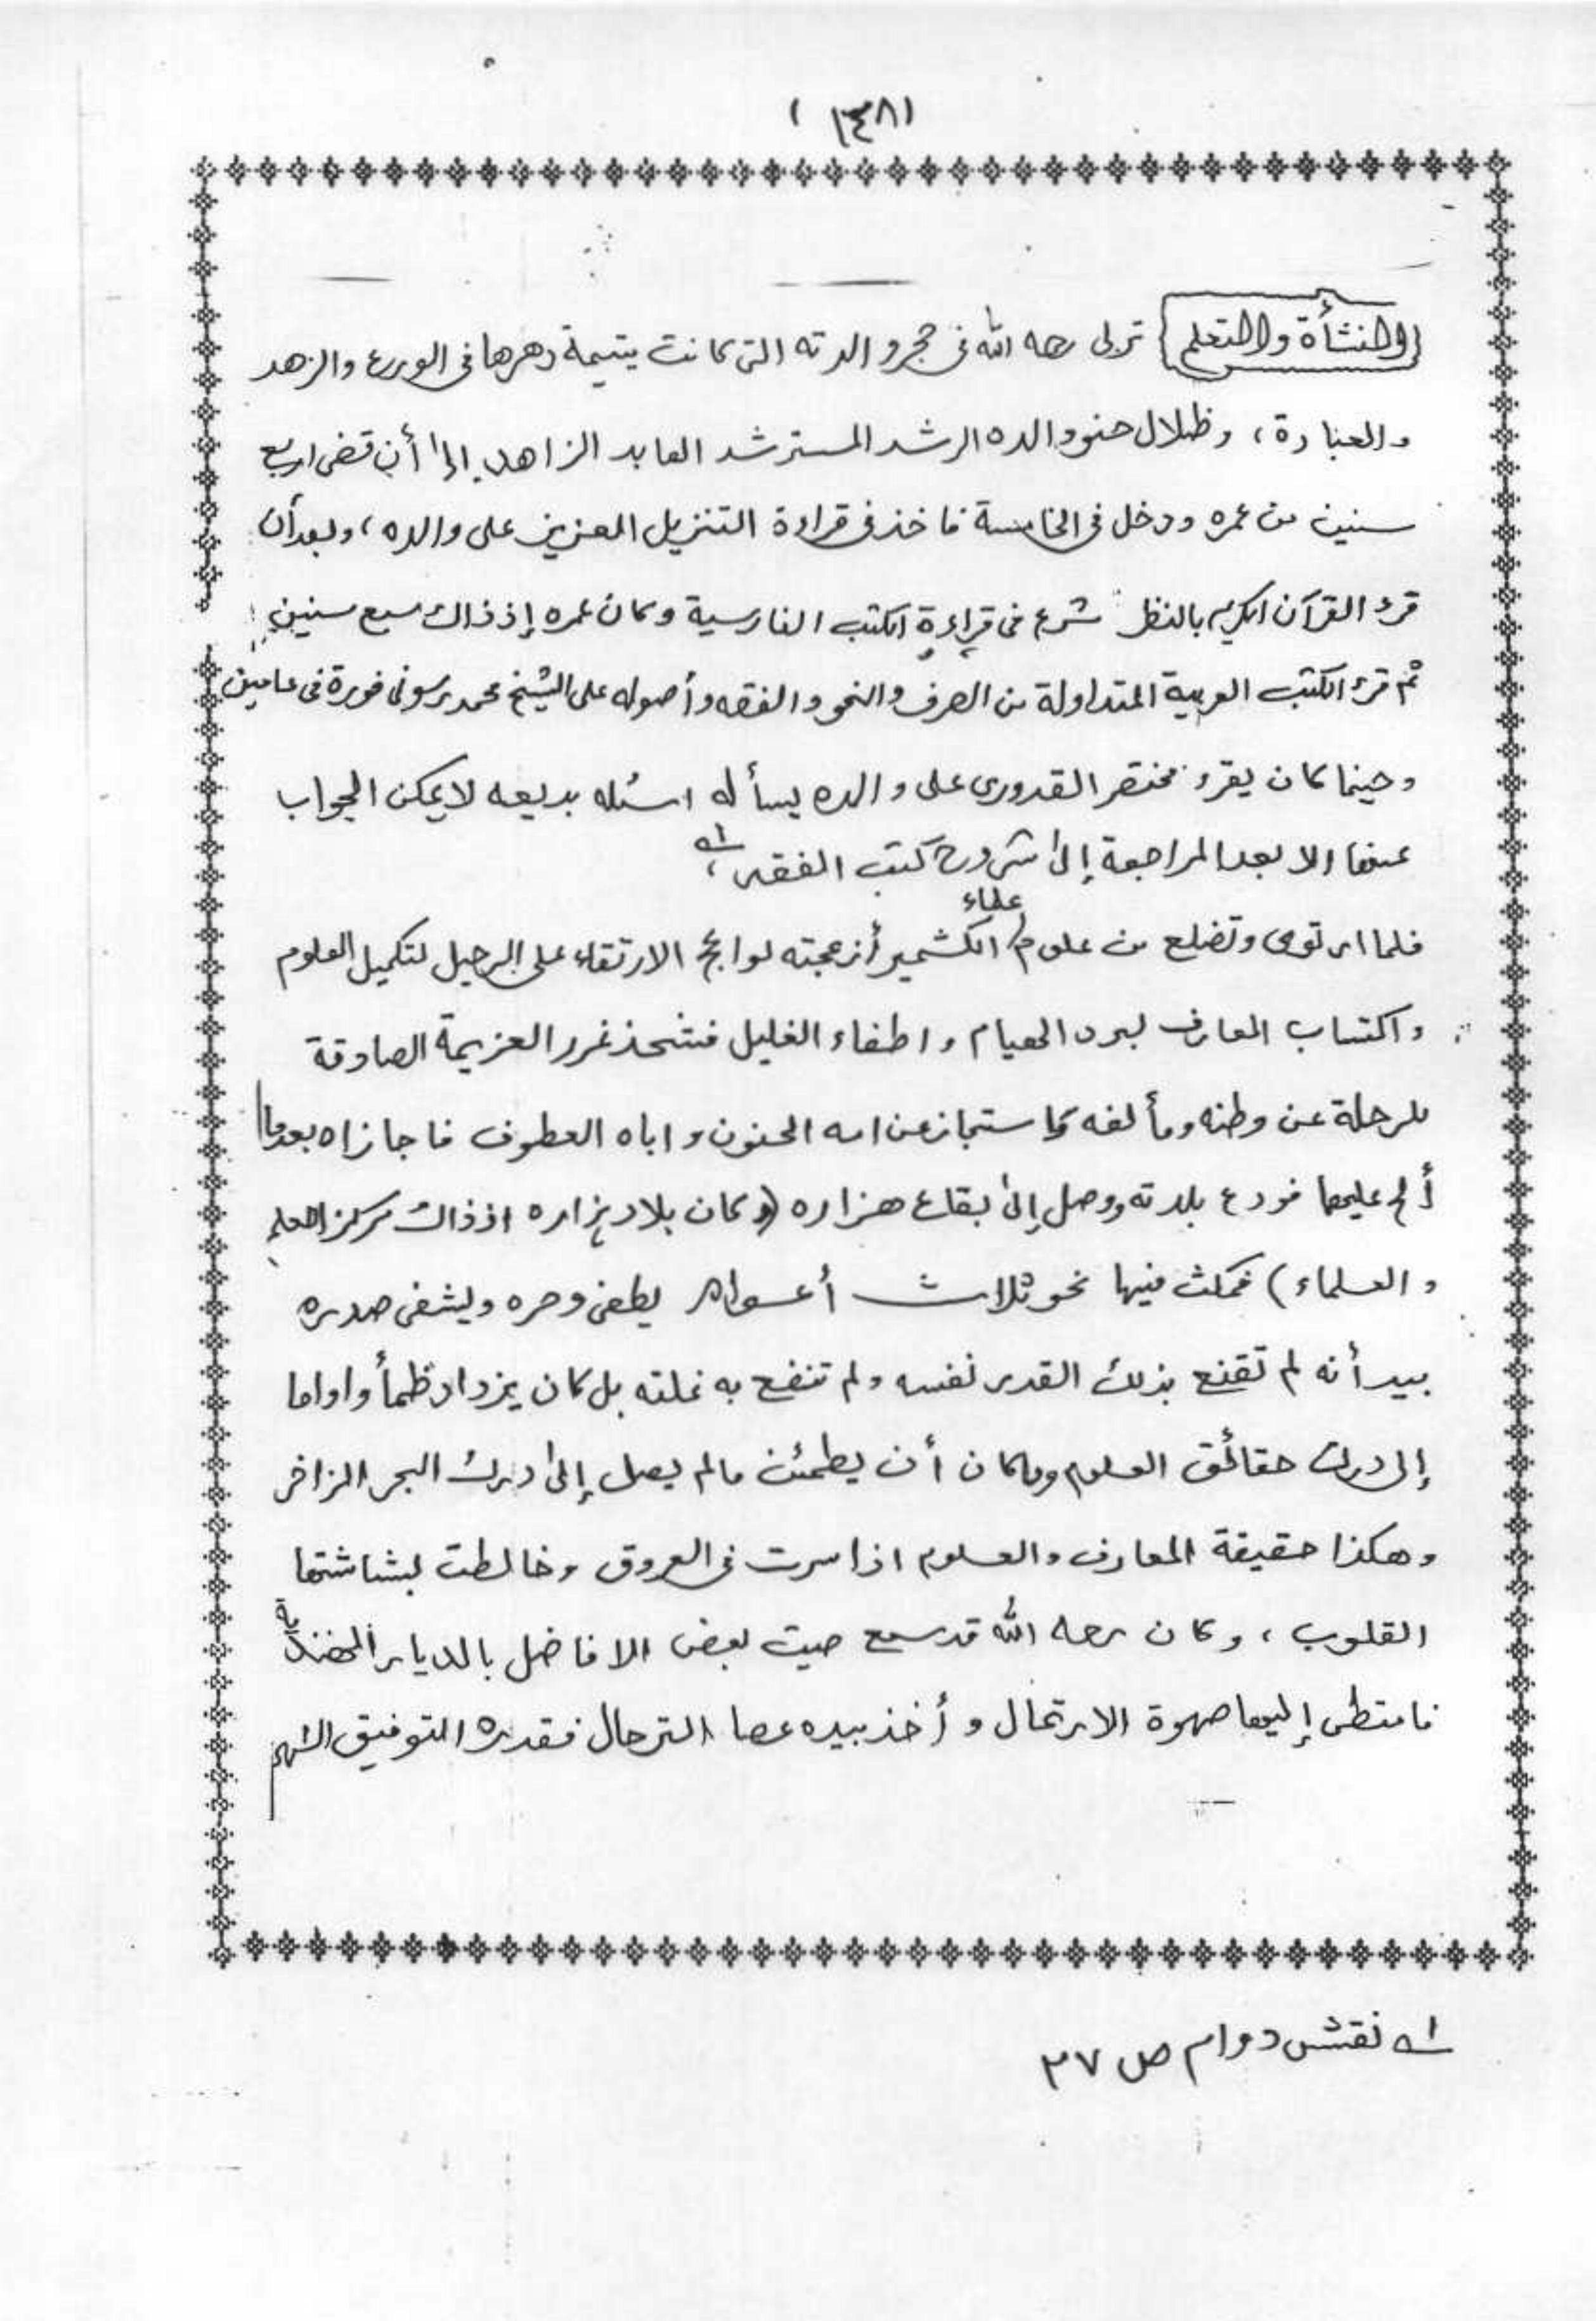 (١٣٨)
(النشأة والتعلم) تربى رحمه الله فى حجر والدته التى كانت يتيمة دهرها فى الورع والزهد
والعبادة، وظلال حنو والده الرشد المسترشد العابد الزاهد. إلى أن قضى اربع
سنين من عمره ودخل فى الخامسة فاخذ فى قراءة التنزيل العزيز على والده، وبعد أن
قرء القرآن الكريم بالنظر شرع فى قراءة الكتب الفارسية وكان عمره إذ ذاك سبع سنين
ثم قرء الكتب العربية المتداولة من الصرف والنحو والفقه وأصوله على الشيخ محمد رسونى فورة فى عامين
وحينما كان يقرء مختصر القدورى على والده يسأله اسئله بديعه لا يمكن الجواب
عنها الا بعد المراجعة إلى شروح كتب الفقه، ١ـه
فلما ارتوى وتضلع من علوم علماء الكشمير أزعجته لواعج الارتقاء على الرحيل لتكميل العلوم
واكتساب المعارف لبرد الهيام واطفاء الغليل فشحذ غرر العزيمة الصادقة
للرحلة عن وطنه ومألفه فاستجاز عن امه الحنون واباه العطوف فاجازاه بعدما
ألح عليهما فودع بلدته ووصل إلى بقاع هزاره (وكان بلاد هزاره اذ ذاك مركز العلم
والعلماء) فمكث فيها نحو ثلاث أعوام يطفى وحره ويشفى صدره
بيد أنه لم تقنع بذلك القدر نفسه ولم تنفع به غلته بل كان يزداد ظمأ واواما
إلى درك حقائق العلوم وماكان أن يطمئن مالم يصل إلى درك البحر الزاخر
وهكذا حقيقة المعارف والعلوم اذا سرت فى العروق وخالطت بشاشتها
القلوب، وكان رحمه الله قد سمع صيت بعض الافاضل بالديار الهندية
فامتطى إليها صهوة الارتحال وأخذ بيده عصا الترحال فقدره التوفيق
١ـه نقش دوام ص ٢٧